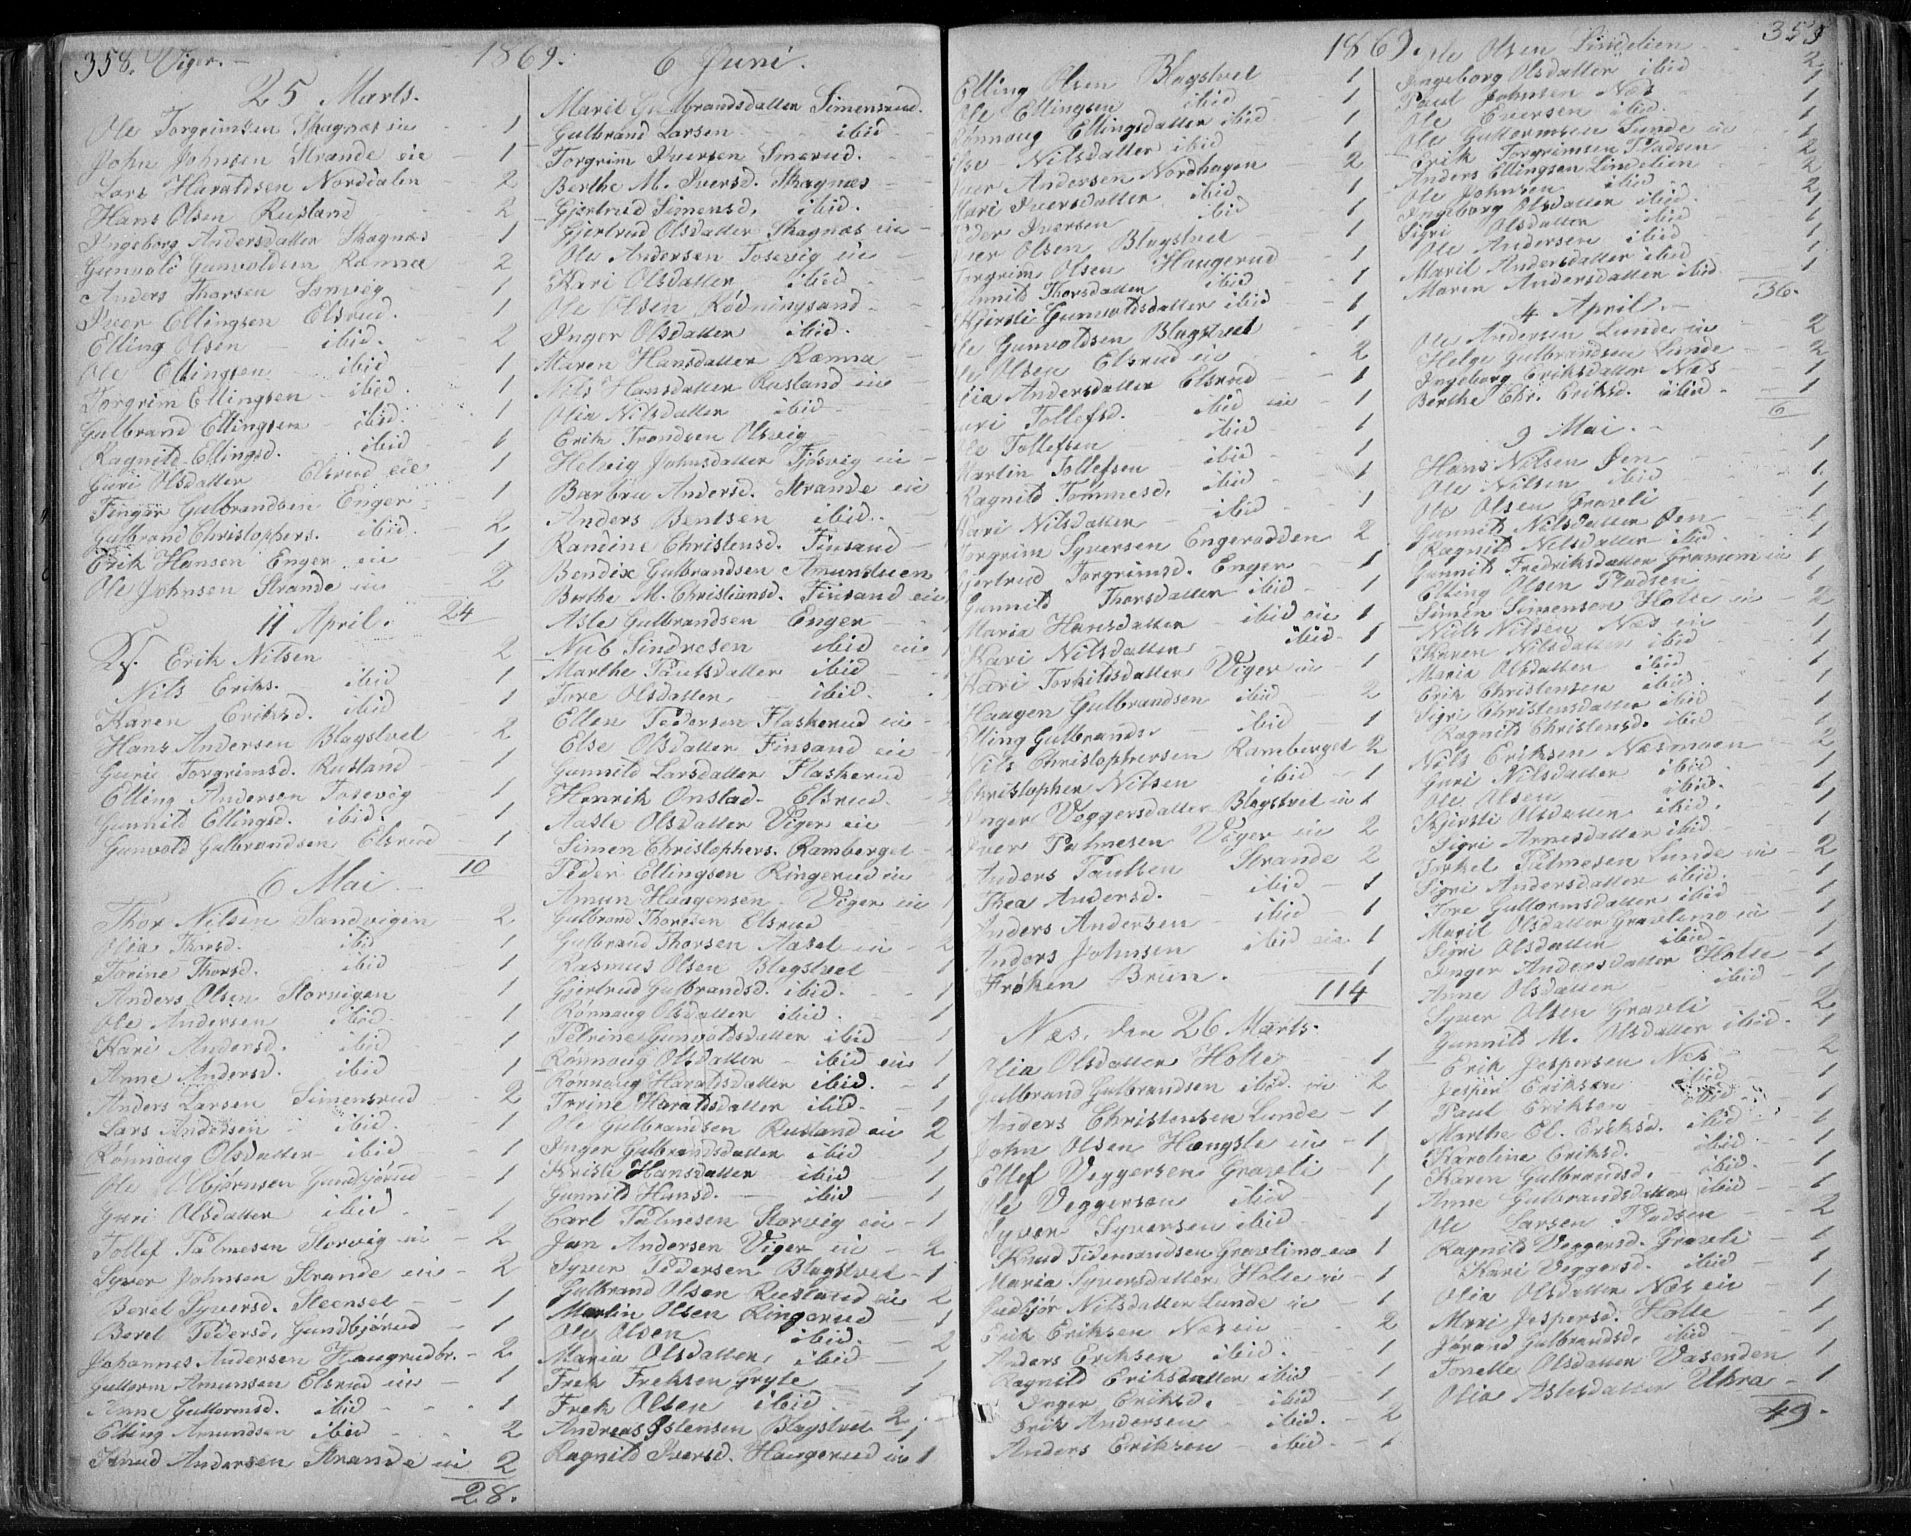 358. Viger. 1869.
25 Marts.
Ole Torgrimsen Skagnæs eie 1
John Johnsen Strande eie 1
Lars Haraldsen Norddalen 2
Hans Olsen Rusland 2
Ingeborg Andersdatter Skagnæs 1
Gunvold Gunvoldsen Ramna 2
Anders Thorsen Sanvig 1
Iver Ellingsen Elsrud. 1
Elling Olsen ibid. 2
Ole Ellingsen ibid 1
Torgrim Ellingsen ibid. 1
Gulbrand Ellingsen ibid. 1
Ragnild Ellingsd. ibid 1
Guri Olsdatter Elsrud eie 1
Fingar Gulbrandsen Enger 1
Gulbrand Christophers. ibid. 2
Erik Hansen Enger eie 1
Ole Johnsen Strande eie 2
24
11 April.
Erik Nilsen 2
Nils Eriks. ibid 1
Karen Eriksd. ibid 1
Hans Andersen Blagstvet 2
Guri Torgrimsd. Rusland 1
Elling Andersen Tosevig 1
Gunnild Ellingsd. ibid. 1
Gunvold Gulbrandsen Elsrud 1
10
6 Mai.
Thor Nilsen Sandvigen 2
Olia Thorsd. ibid 1
Torine Thorsd. ibid 1
Anders Olsen Storvigen 1
Ole Andersen ibid. 1
Kari Andersd. ibid 1
Anne Andersd. ibid 1
Anders Larsen Simensrud 2
Lars Andersen ibid. 1
Rønnoug Olsdatter ibid 1
Ole Asbjørnsen Gundbjørud 1
Guri Olsdatter ibid. 1
Tollef Palmesen Storvig eie 2
Syver Johnsen Strande eie 2
Beret Syversd. Steenset 1
Beret Pedersd. Gundbjørud 1
Johannes Andersen Haugrudbr. 2
Guttorm Amunsen Elsrud eie 1
Anne Guttormsd. ibid 1
Elling Amundsen ibid 2
Knud Andersen Strande eie 2
28.
6 Juni.
Marit Gulbrandsdatter Simensrud.
Gulbrand Larsen ibid
Torgrim Iversen Smerud.
Berthe M. Iversd. Skagnæs
Gjertrud Simensd. ibid.
Gjertrud Olsdatter Skagnæs eie
Ole Andersen Tosevig eie
Kari Olsdatter ibid.
Ole Olsen Rødningsand
Inger Olsdatter ibid.
Maren Hansdatter Ramna
Nils Hansdatter Rusland eie
Olia Nilsdatter ibid
Erik Trondsen Olsvig
Helvig Johnsdatter Fjøsvig eie
Barbru Andersd. Strande eie
Anders Bentsen ibid.
Randine Christensd. Finsand
Bendix Gulbrandsen Amundsen
Berthe M. Christiansd. Finsand eie
Asle Gulbrandsen Enger
Nub Sindresen ibid eie
Marthe Paulsdatter ibid
Tore Olsdatter ibid.
Ellen Pedersen Flaskerud eie
Else Olsdatter Finsand eie
Gunnild Larsdatter Flaskerud
Henrik Onstad Elsrud.
Aaste Olsdatter Viger eie
Simen Christophers. Ramberget
Peder Ellingsen Ringerud eie
Amun Haagensen Viger eie 1
Gulbrand Thoresen Elsrud
Gulbrand Thorsen Aaset eie 2
Rasmus Olsen Blagstvet 1
Gjertrud Gulbrandsd. ibid. 1
Rønnoug Olsdatter ibid. 1
Petrine Gunvoldsdatter ibid 1
Rønnoug Olsdatter ibid eie 1
Rønnoug Haraldsdatter ibid. 1
Torine Haraldsdatter ibid. 1
Ole Gulbrandsen Rusland eie 2
Inger Gulbrandsdatter ibid 1
Kristi Hansdatter ibid 1
Gunnild Hansd. ibid 1
Carl Palmesen Storvig eie 1
Jan Andersen Viger eie 2
Syver Pedersen Blagstvet 1
Gulbrand Olsen Rusland eie 2
Martin Olsen Ringerud 1
Ole Olsen ibid. 2
Maria Olsdatter ibid 1
Frek Freksen gryte 1
Frek Olsen ibid. 2
Andreas Østensen Blagstvet 1
Ragnild Iversd. Haugerud eie 1
1869. 359
Elling Olsen Blagstvet 1
Ole Ellingsen ibid 1
Rønnoug Ellingsdatter ibid. 1
Else Nilsdatter ibid 1
Iver Andersen Nordhagen 2
Mari Iversdatter ibid 1
Peder Iversen ibid 1
Iver Olsen Blagstvet 1
Torgrim Olsen Haugerud 1
Gunnild Thorsdatter ibid 1
Kjersti Gunvoldsdatter ibid 1
Ole Gunvoldsen Blagstvet 1
Ole Olsen Elsrud eie 2
Olia Andersdatter Elsrud 1
Guri Tollefsd. ibid eie 1
Ole Tollefsen ibid 1
Martin Tollefsen ibid 1
Ragnild Tommesd. ibid 1
Kari Nilsdatter ibid 1
Torgrim Syversen Engeradden 2
Gjertrud Torgrimsd. Enger 1
Gunnild Thorsdatter ibid 1
Maria Hansdatter ibid eie 1
Kari Nilsdatter ibid 1
Kari Torkildsdatter Viger eie 1
Haagen Gulbrandsen ibid 2
Elling Gulbrands. ibid 1
Nils Christophersen Ramberget 2
Christopher Nilsen ibid 1
Inger Veggersdatter Blagstvet eie 1
Iver Palmesen Viger eie 2
Anders Paulsen Strande 2
Thea Andersd. ibid 1
Anders Andersen ibid 1
Anders Johnsen ibid eie 1
Frøken Brun. 1
114
Nes, den 26 Marts.
Olia Olsdatter Holte 1
Gulbrand Gulbrandsen ibid. eie 2
Anders Christensen Lunde 1
John Olsen Hængsle eie 1
Ellef Veggersen Gravli 1
Ole Veggersen ibid 1
Syver Syversen ibid 1
Knud Tidemandsen Gravlimo eie 1
Maria Syversdatter Holte eie 1
Gudbjør Nilsdatter Lunde eie 1
Erik Eriksen Næs eie 2
Anders Eriksen ibid. 1
Ragnild Eriksdatter ibid 1
Inger Eriksd. ibid 1
Erik Andersen ibid. 2
Anders Eriksen ibid. 1
Ole Olsen Lindelien 2
Ingeborg Olsdatter ibid 1
Paul Johnsen Næs 1
Ole Eversen ibid. 1
Ole Guttormsen Lunde eie 1
Erik Torgrimsen Pladsen 2
Anders Ellingsen Lindelien 2
Ole Johnsen ibid. 2
Ingeborg Olsdatter ibid. 1
Sigri Olsdatter ibid 1
Ole Andersen ibid. 1
Marit Andersdatter ibid 1
Maren Andersdatter ibid. 1
36.
4 April.
Ole Andersen Lunde eie 2
Helge Gulbrandsen Lunde 2
Ingeborg Eriksdatter Næs 1
Berthe Chr. Eriksd. ibid. 1
6
9 Mai.
Hans Nilsen Øen 1
Ole Nilsen ibid 1
Ole Olsen Gravli 1
Gunnild Nilsdatter Øen 1
Ragnild Nilsdatter ibid. 1
Gunnild Fredriksdatter Gramom eie 1
Elling Olsen Pladsen 1
Simen Simensen Holte eie 2
Niels Nilsen Næs eie 1
Karen Nilsdatter ibid 1
Maria Olsdatter ibid 1
Erik Christensen ibid. 1
Sigri Christensdatter ibid 1
Ragnild Christensd. ibid 1
Nils Eriksen Næsmoen 2
Guri Nilsdatter ibid. 1
Ole Olsen ibid. 1
Kjersti Olsdatter ibid. 1
Sigri Arnesdatter ibid. 1
Torkel Palmesen Lunde eie 2
Sigri Andersdatter ibid. 1
Tore Guttormsdatter ibid 1
Marit Olsdatter Gravlimo eie 1
Sigri Olsdatter ibid. 1
Inger Andersdatter Holte 1
Anne Olsdatter ibid 1
Syver Olsen Gravli 2
Gunnild M. Olsdatter ibid. 1
Erik Jespersen Næs 2
Jesper Eriksen ibid 1
Paul Eriksen ibid. 1
Marthe Ol. Eriksd. ibid 1
Karoline Eriksd. ibid. 1
Karen Gulbrandsd. ibid. 1
Anne Gulbrandsdatter ibid 1
Ole Larsen Pladsen 2
Ragnild Veggersd. Gravli 1
Kari Veggersd. ibid 1
Olia Olsdatter Næs eie 1
Mari Jespersd. Holte 1
Jørand Gulbrandsd. ibid 1
Tonette Olsdatter Vasenden 1
Olia Aslesdatter Ukra 1
49.